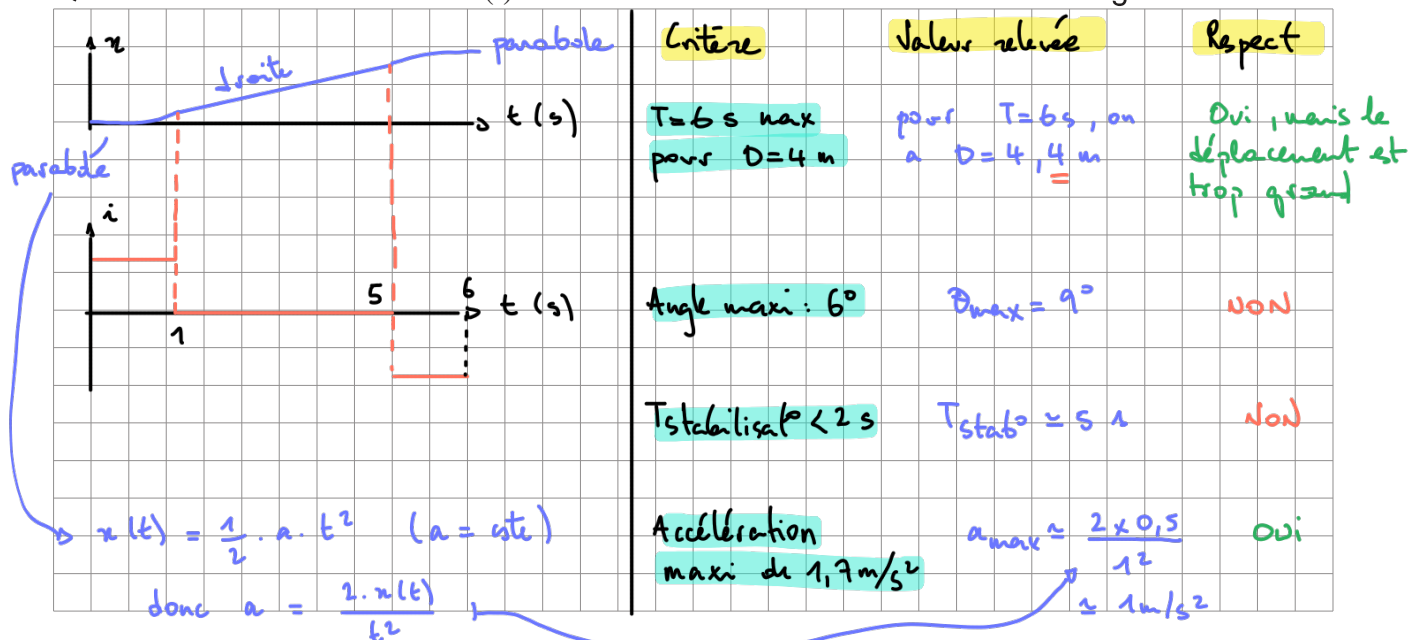 x
droite
parabole
t (s)
parabole
i
5
6
t (s)
1
x(t) = 1/2 . a . t² (a = cste)
donc a = 2 . x(t) / t²
Critère
Valeur relevée
Respect
T = 6 s max
pour D = 4 m
pour T = 6 s, on
a D = 4,4 m
Oui, mais le
déplacement est
trop grand
Angle maxi : 6°
θmax = 9°
NON
Tstabilisat° < 2 s
Tstab° ≃ 5 s
NON
Accélération
maxi de 1,7 m/s²
amax ≃ 2 x 0,5 / 1²
≃ 1 m/s²
OUI